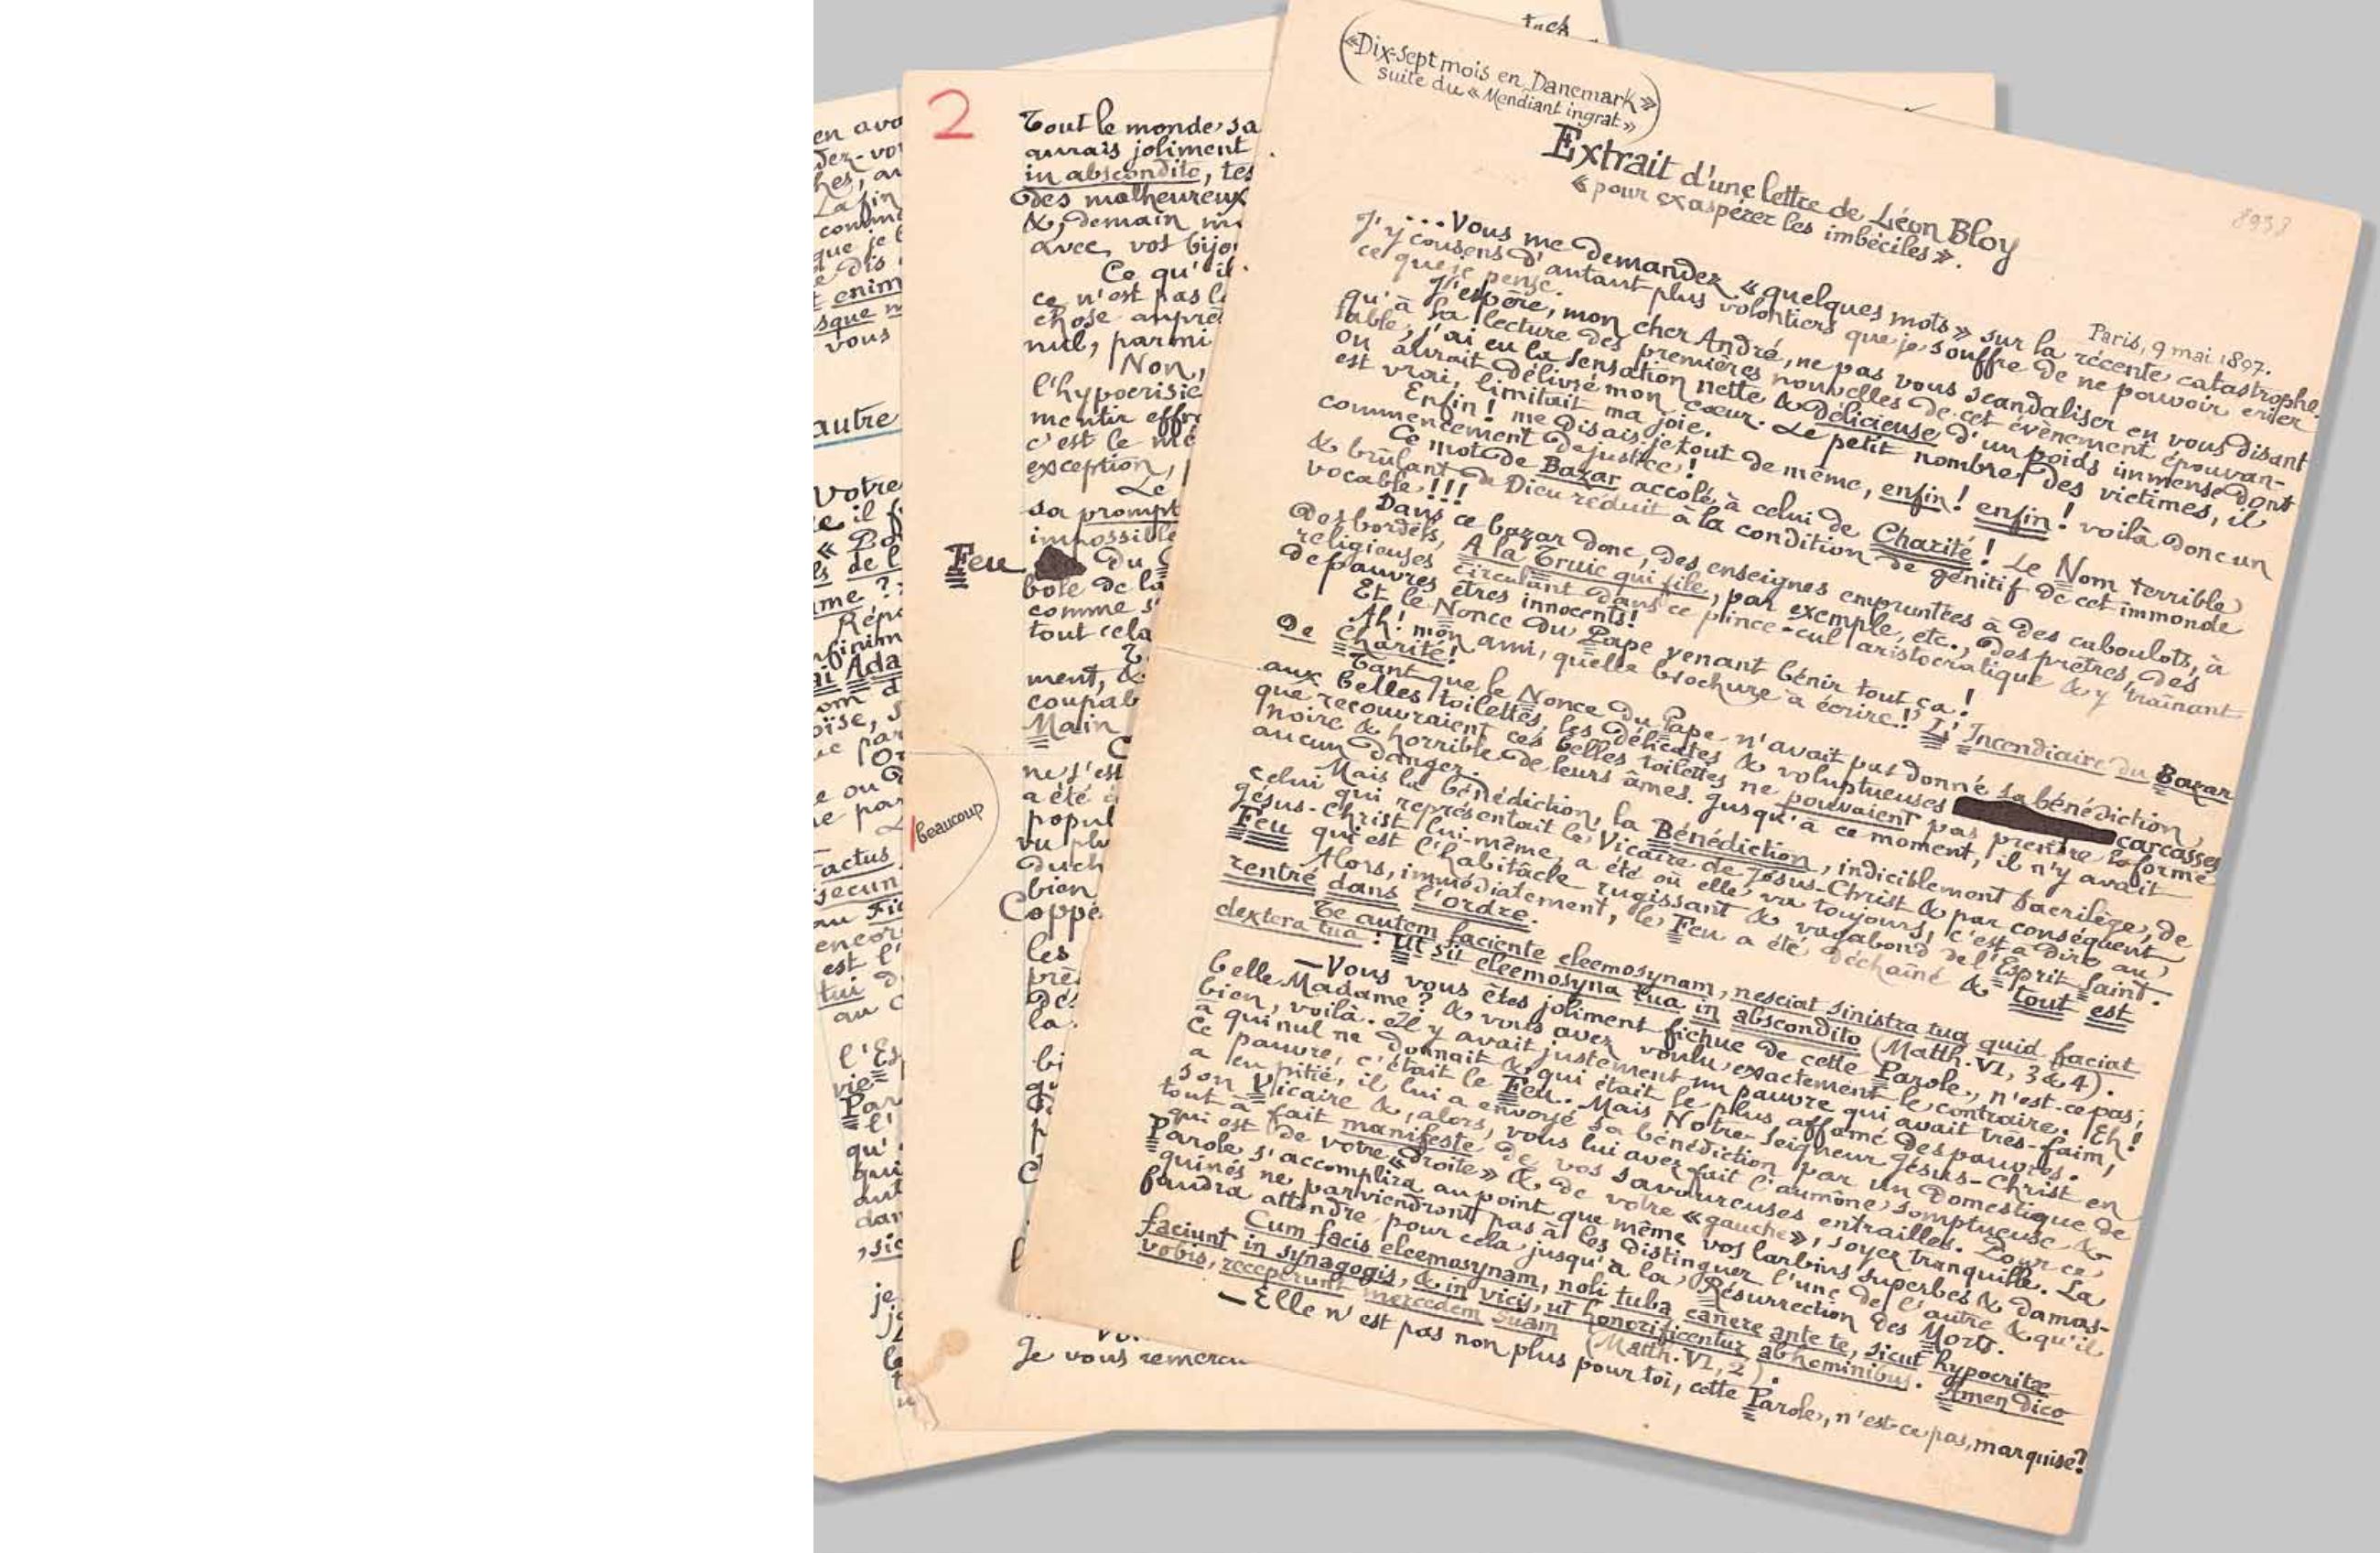 tuch
en avo
dez-vo
hes, au
La fin
comm
que je
e dis
t enim
sque
vous
autre
Votre
e il
« P
ls de l
me ?
Répo
nfinim
ai Ada
om d
oïse, s
ue par
l'Or
e ou d
ne par
actus
secun
au Fi
encor
est l'
tui d
au
l'Es
vie
Par
l'
qu'
qui
aut
dan
, sic
je
2
Tout le monde sa
aurais joliment
in abscondito, tes
des malheureux
&, demain
avec vos bijo
Ce qu'il
ce n'est pas l
chose auprè
nul, parmi
Non,
l'hypocrisie
mentir effr
c'est le mê
exception,
Le
sa prompt
impossible
Feu du
bole de la
comme s
tout cela
ment, &
coupab
Main
ne s'est
a été
popul
beaucoup
vu plu
duch
bien
Coppé
les
prè
des
la
bi
qu
Je vous remerci
(« Dix-sept mois en Danemark »
suite du « Mendiant ingrat »)
Extrait d'une lettre de Léon Bloy
« pour exaspérer les imbéciles ».
8933
Paris, 9 mai 1897.
...Vous me demandez « quelques mots » sur la récente catastrophe.
J'y consens d'autant plus volontiers que je souffre de ne pouvoir crier
ce que je pense.
J'espère, mon cher André, ne pas vous scandaliser en vous disant
qu'à la lecture des premières nouvelles de cet évènement épouvan-
table, j'ai eu la sensation nette & délicieuse d'un poids immense dont
on aurait délivré mon cœur. Le petit nombre des victimes, il
est vrai, limitait ma joie.
Enfin ! me disais-je tout de même, enfin ! enfin ! voilà donc un
commencement de justice !
Ce mot de Bazar accolé à celui de Charité ! Le Nom terrible
& brûlant de Dieu réduit à la condition de génitif de cet immonde
vocable !!!
Dans ce bazar donc, des enseignes empruntées à des caboulots, à
des bordels, A la Truie qui file, par exemple, etc., des prêtres, des
religieuses circulant dans ce pince-cul aristocratique & y traînant
de pauvres êtres innocents !
Et le Nonce du Pape venant bénir tout ça !
Ah ! mon ami, quelle brochure à écrire ! L'Incendiaire du Bazar
de Charité !
Tant que le Nonce du Pape n'avait pas donné sa bénédiction
aux belles toilettes, les délicates & voluptueuses carcasses
que recouvraient ces belles toilettes ne pouvaient pas prendre la forme
noire & horrible de leurs âmes. Jusqu'à ce moment, il n'y avait
aucun danger.
Mais la bénédiction, la Bénédiction, indiciblement sacrilège, de
celui qui représentait le Vicaire de Jésus-Christ & par conséquent
Jésus-Christ lui-même, a été où elle va toujours, c'est à dire au
Feu qui est l'habitâcle rugissant & vagabond de l'Esprit Saint.
Alors, immédiatement, le Feu a été déchaîné & tout est
rentré dans l'ordre.
Te autem faciente eleemosynam, nesciat sinistra tua quid faciat
dextera tua : Ut sit eleemosyna tua in abscondito (Matth. VI, 3 & 4).
— Vous vous êtes joliment fichue de cette Parole, n'est-ce pas,
belle Madame ? & vous avez voulu exactement le contraire. Eh !
bien, voilà. Il y avait justement un pauvre qui avait très-faim,
à qui nul ne donnait & qui était le plus affamé des pauvres.
Ce pauvre, c'était le Feu. Mais Notre-Seigneur Jésus-Christ en
a eu pitié, il lui a envoyé sa bénédiction par un domestique de
son Vicaire &, alors, vous lui avez fait l'aumône somptueuse &
tout à fait manifeste de vos savoureuses entrailles. Pour ce
qui est de votre « droite » & de votre « gauche », soyez tranquille. La
Parole s'accomplira au point que même vos larbins superbes & damas-
quinés ne parviendront pas à les distinguer l'une de l'autre & qu'il
faudra attendre pour cela jusqu'à la Résurrection des Morts.
Cum facis eleemosynam, noli tuba canere ante te, sicut hypocritæ
faciunt in synagogis, & in vicis, ut honorificentur ab hominibus. Amen dico
vobis, receperunt mercedem suam (Matth. VI, 2).
— Elle n'est pas non plus pour toi, cette Parole, n'est-ce pas, marquise ?